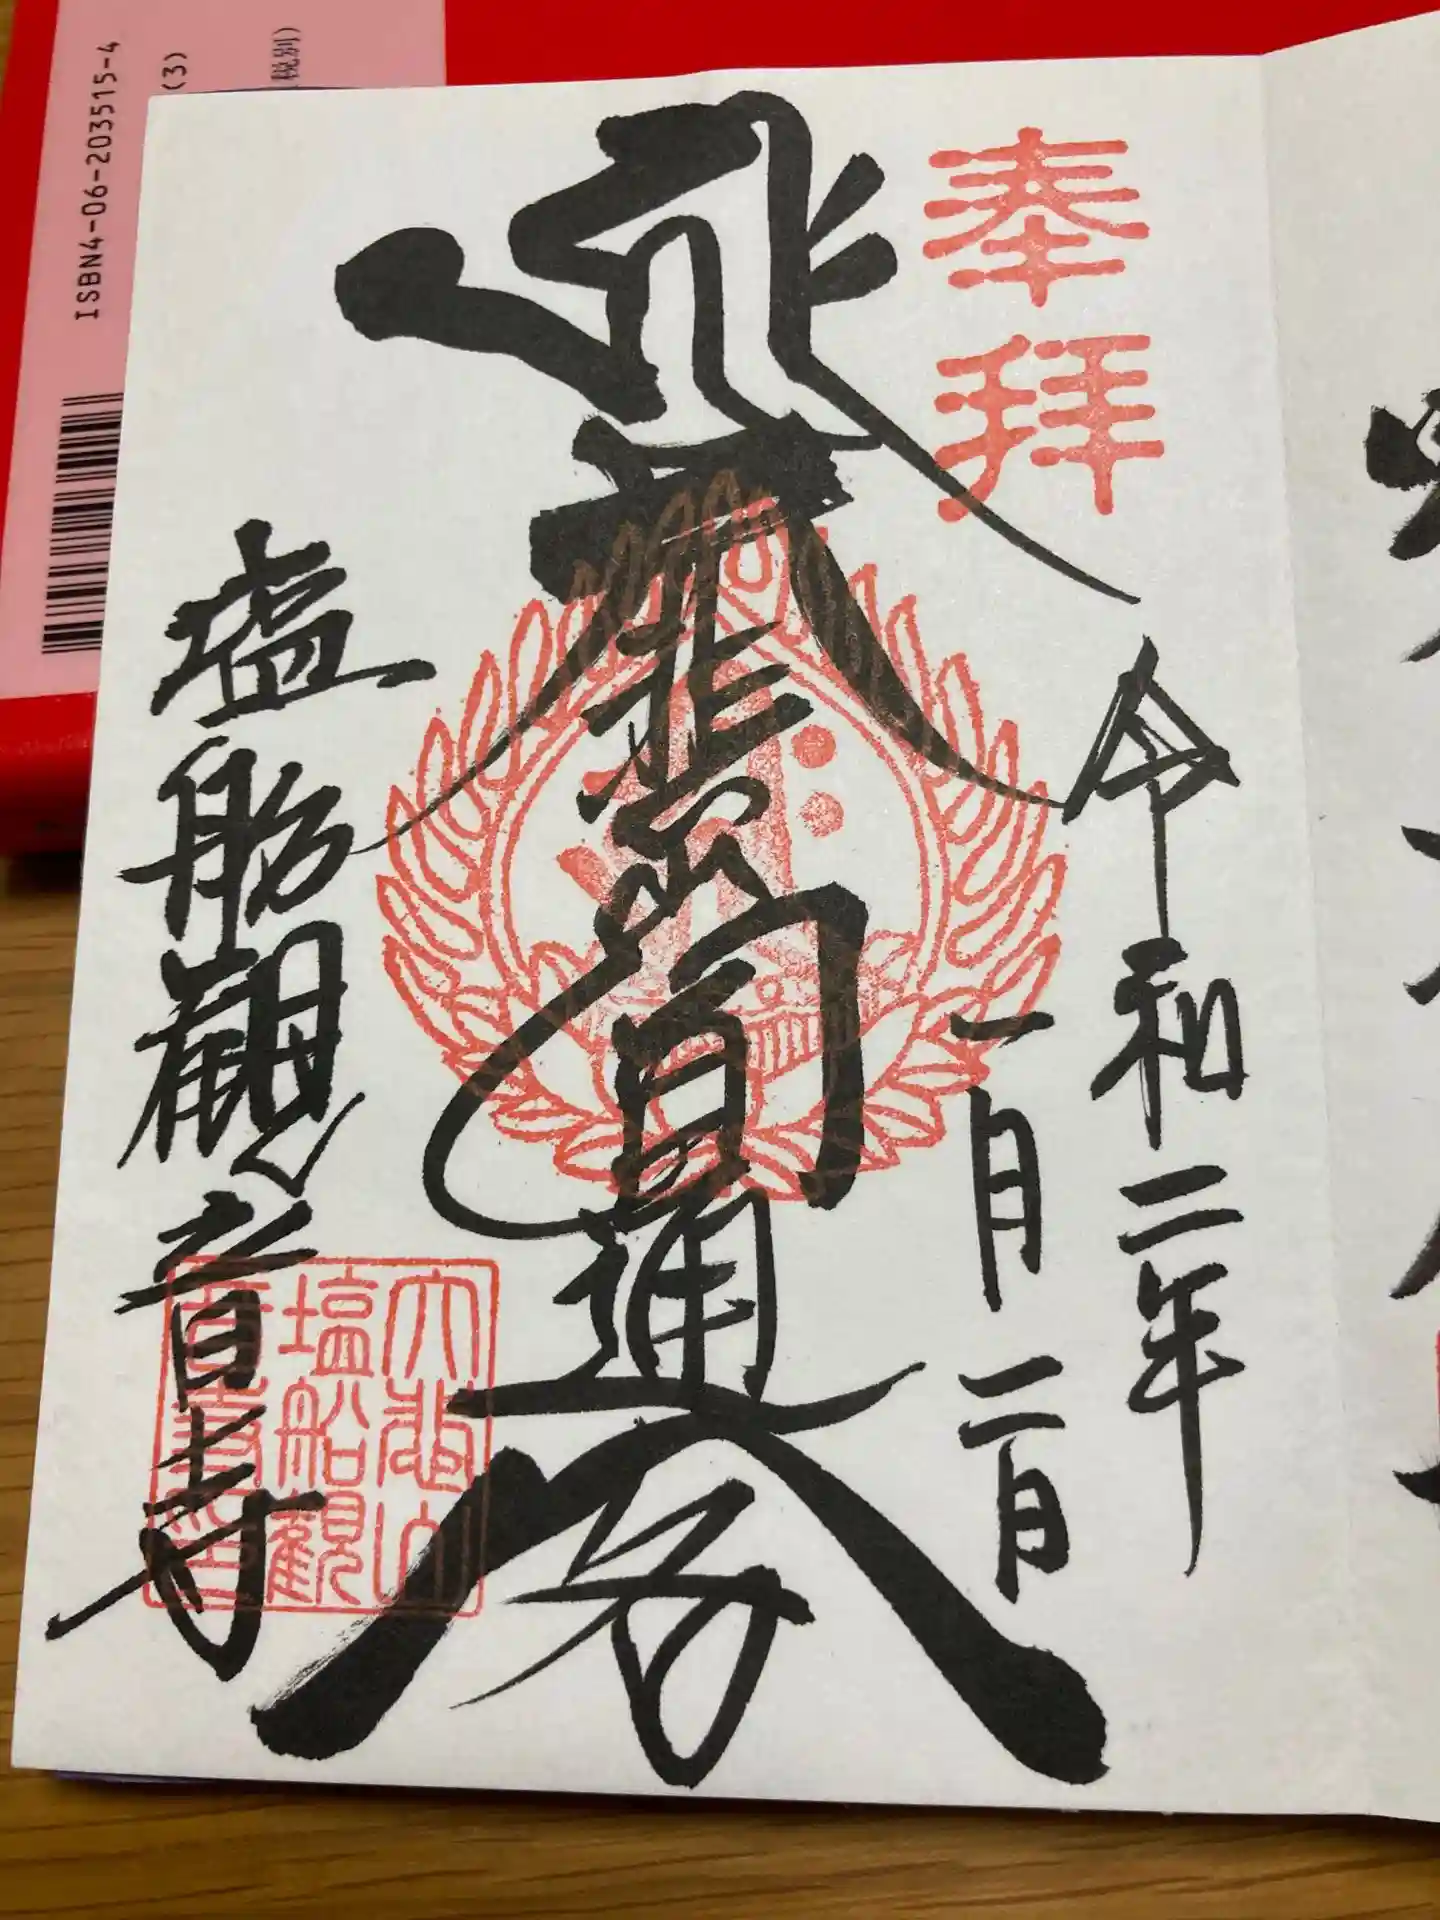 ISBN4-06-203515-4
(3)
税別)
奉拝
令和二年
一月二日
大悲
通
塩船観音寺
大悲山
塩船観
音寺印